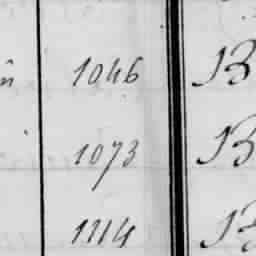 1046 B
1073 B
1114 B